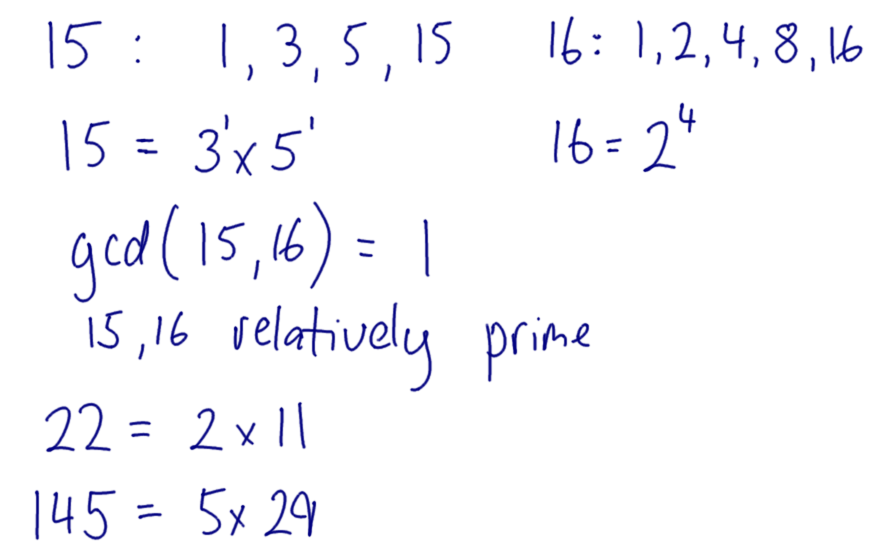 15 : 1, 3, 5, 15 16: 1, 2, 4, 8, 16
15 = 3¹ x 5¹ 16 = 2⁴
gcd(15, 16) = 1
15, 16 relatively prime
22 = 2 x 11
145 = 5 x 29